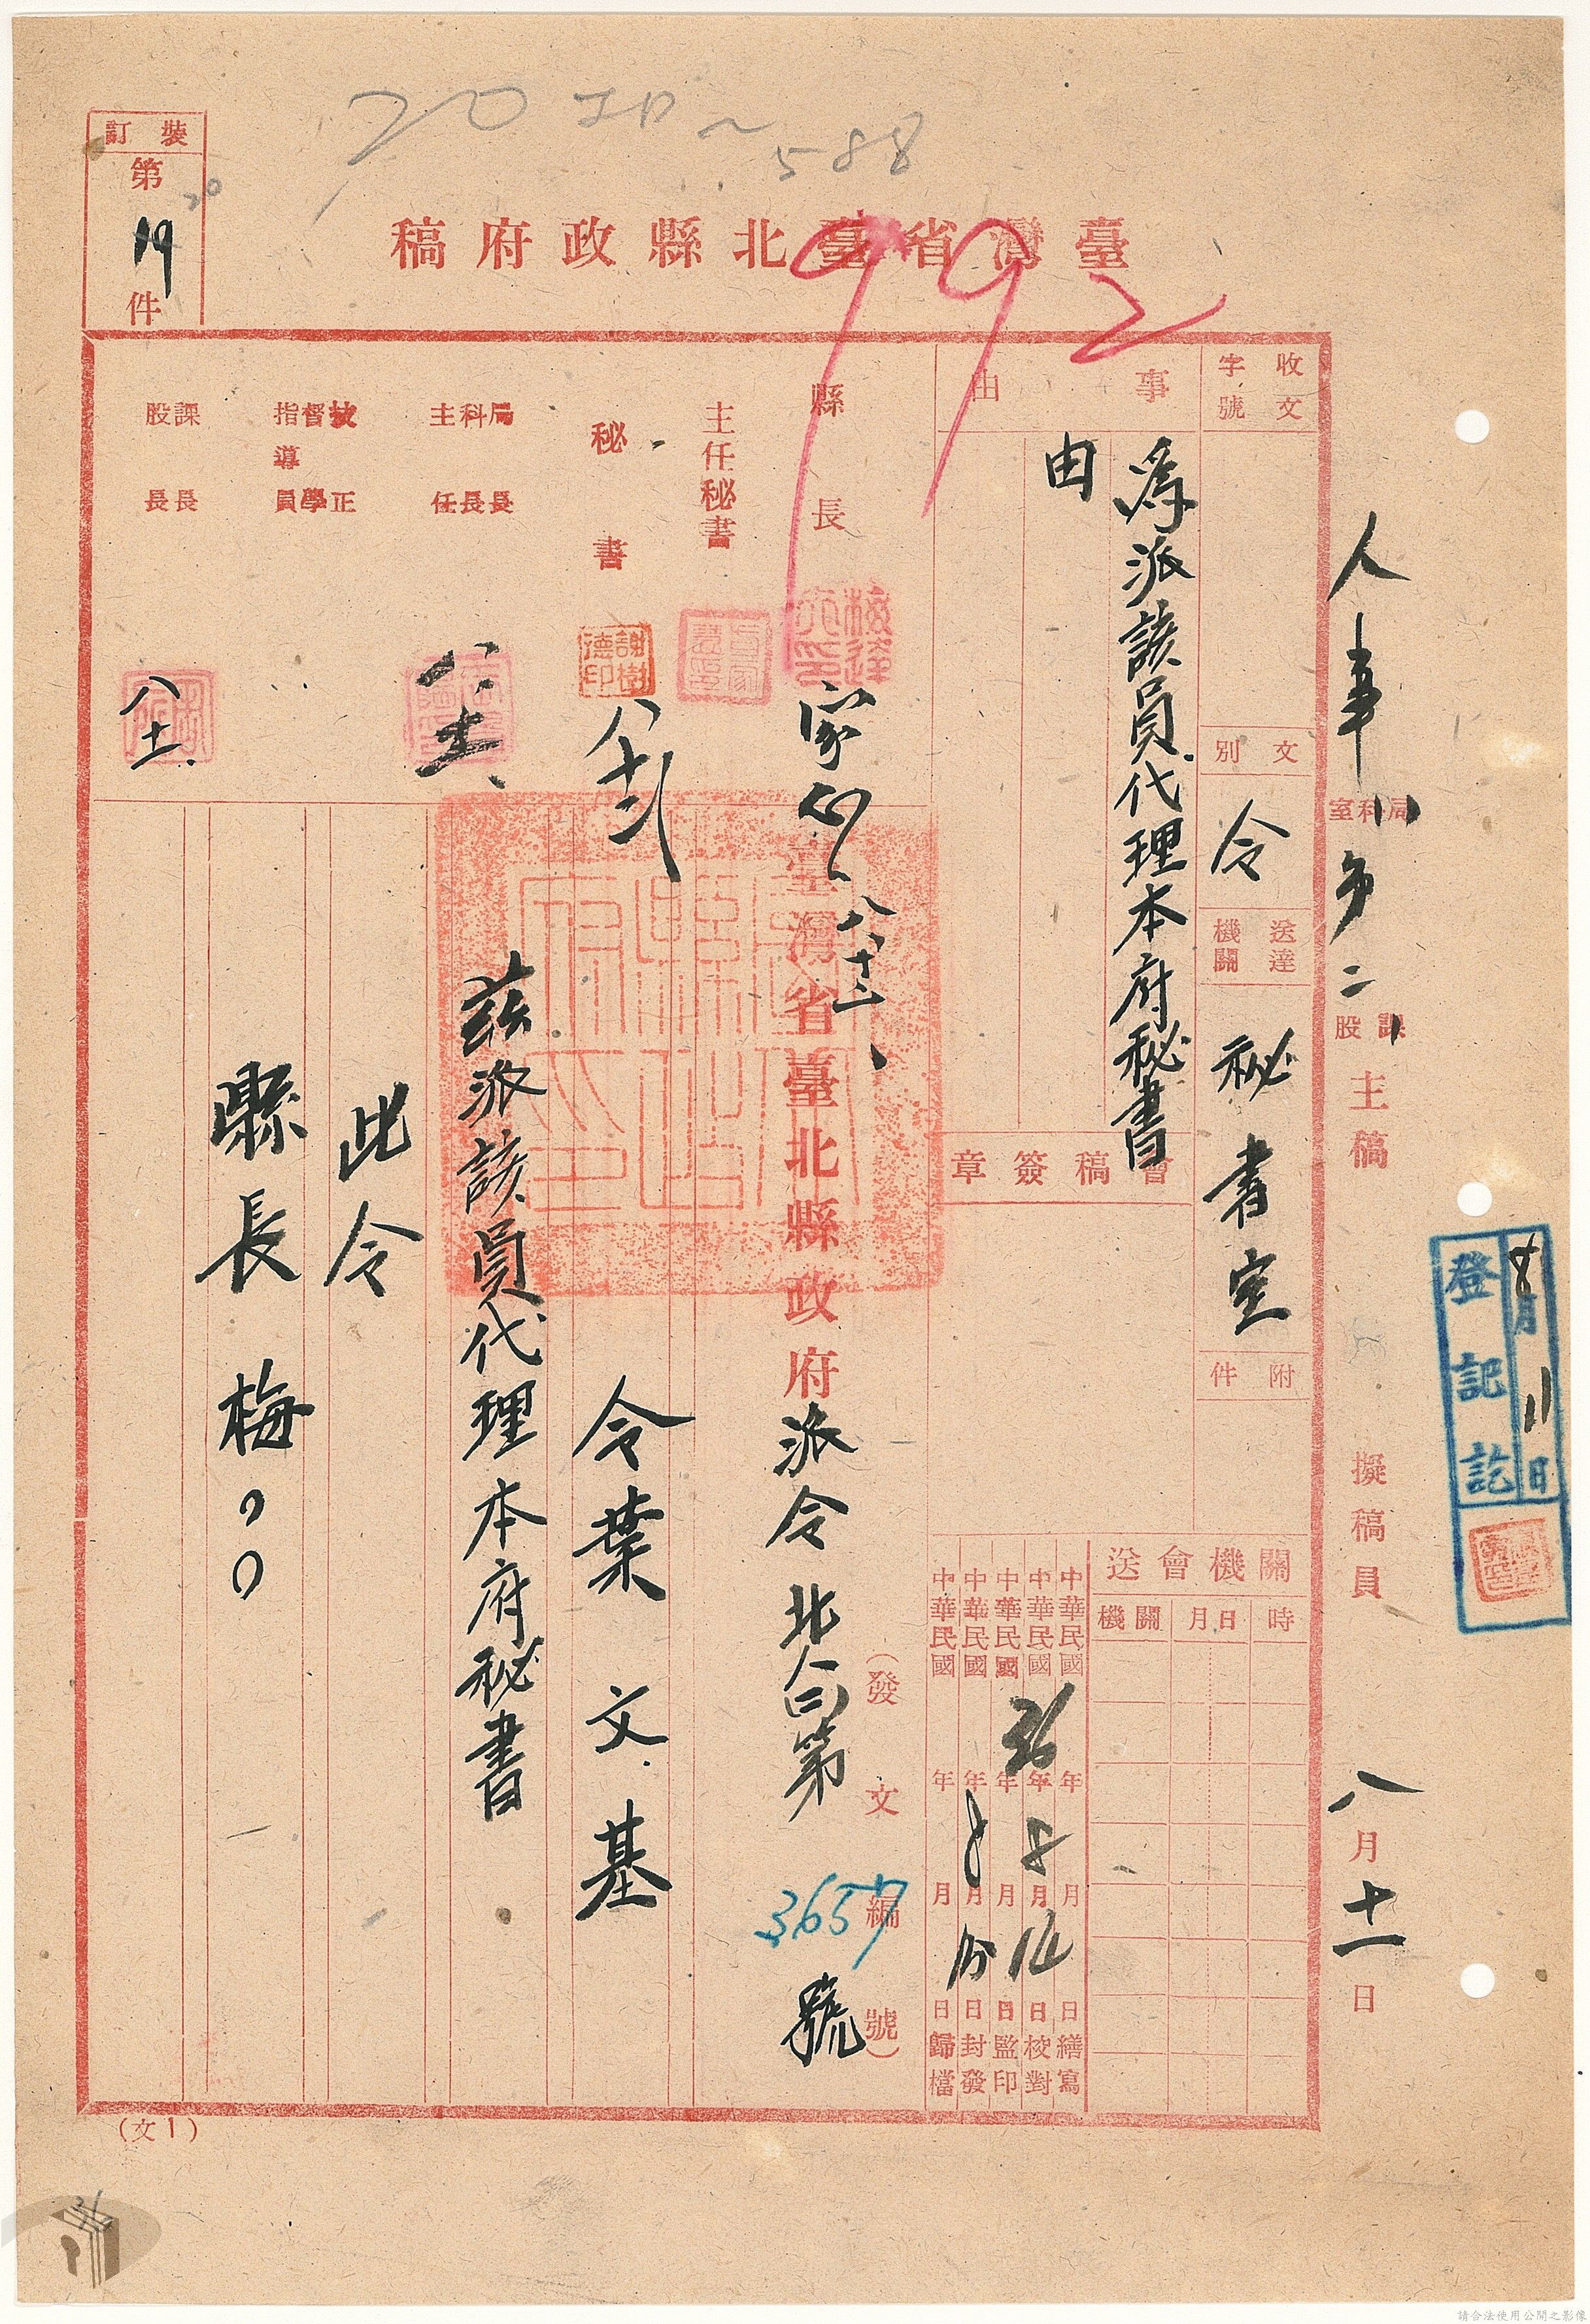 20
588
992
裝訂
第
20
19
件
臺灣省臺北縣政府稿
人事 局科室 第二 課股 主稿 擬稿員 八月十一日
登記訖
8月11日
收文
字號
文別
令
送達機關
秘書室
附件
事由
為派該員代理本府秘書
由
會稿簽章
關機會送
時 月日 機關
中華民國 年 月 日繕寫
中華民國 年 月 日校對
中華民國 36年 8月 日監印
中華民國 年 月 日封發
中華民國 年 月 日歸檔
縣長
主任秘書
秘書
謝樹德印
八十二
局長
科長
主任
技正
督學
指導員
課長
股長
八十一
八十二
臺灣省臺北縣政府派令 北人(二)第3657號
(發文編號)
令葉文基
茲派該員代理本府秘書
此令
縣長梅
(文1)
請合法使用公開之影像